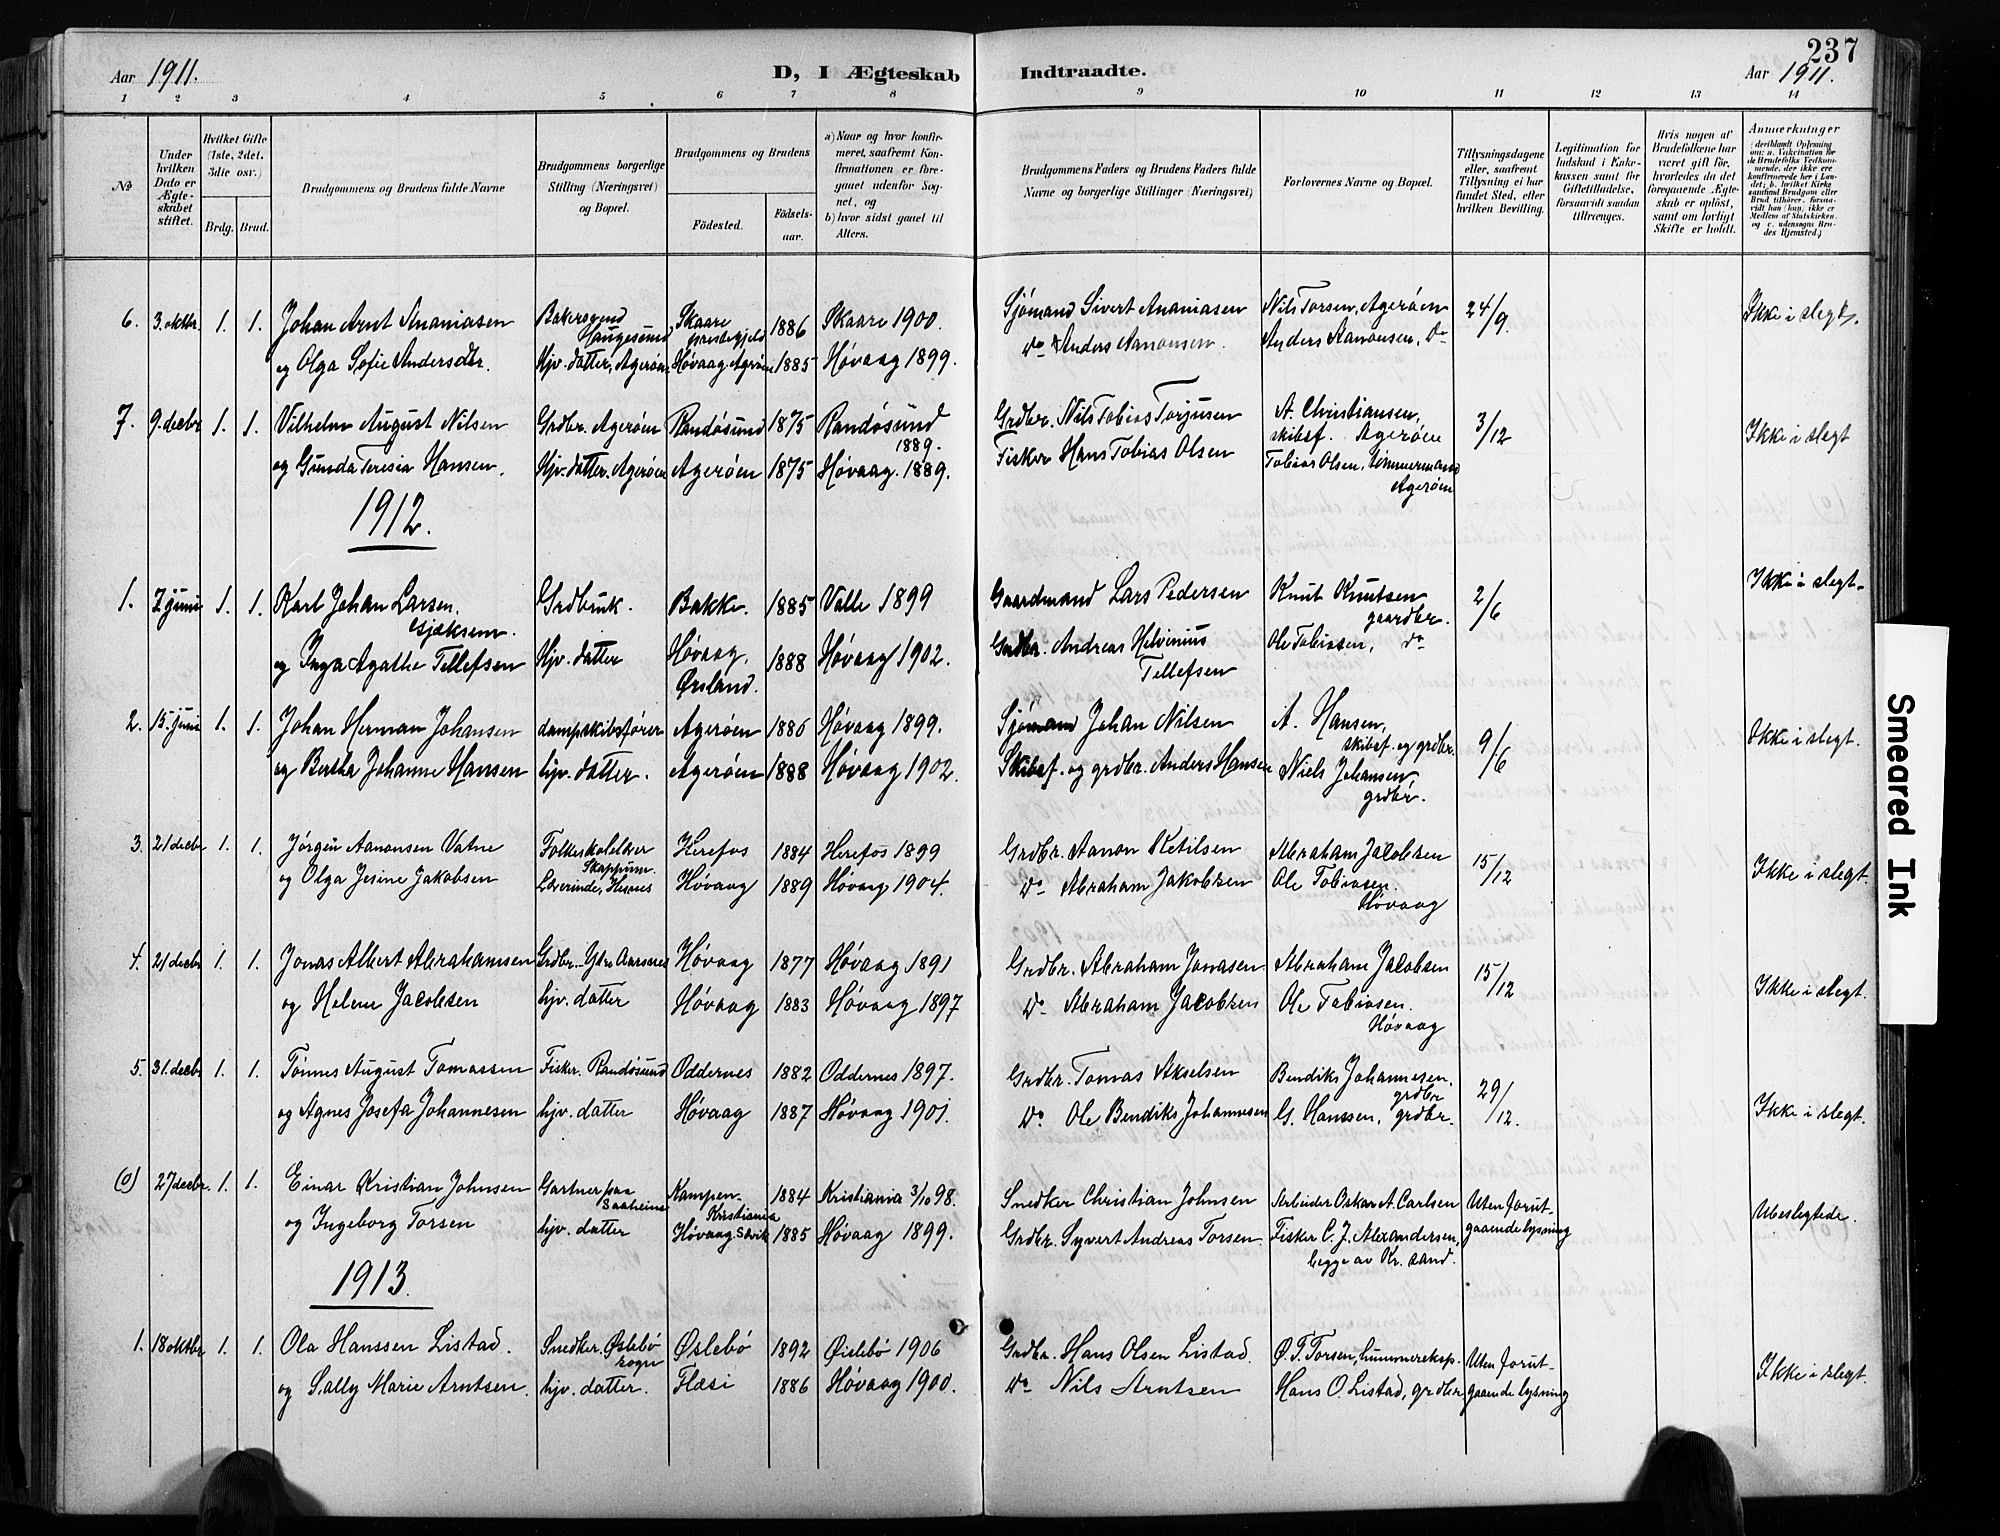 237
Aar 1911. D, I Ægteskab Indtraadte. Aar 1911.
1 2 3 4 5 6 7 8 9 10 11 12 13 14
No
Under hvilken Dato er Ægteskabet stiftet.
Hvilket Gifte (1ste, 2det, 3die osv.)
Brdg. Brud.
Brudgommens og Brudens fulde Navne
Brudgommens borgerlige Stilling (Næringsvei) og Bopæl.
Brudgommens og Brudens
Fødested. Fødselsaar.
a) Naar og hvor konfirmeret, saafremt Konfirmationen er foregaaet udenfor Sognet, og
b) hvor sidst gaaet til Alters.
Brudgommens Faders og Brudens Faders fulde Navne og borgerlige Stillinger (Næringsvei)
Forlovernes Navne og Bopæl.
Tillysningsdagene eller, saafremt Tillysning ei har fundet Sted, efter hvilken Bevilling.
Legitimation for Indskud i Enkekassen samt for Giftetilladelse, forsaavidt saadan tiltrænges.
Hvis nogen af Brudefolkene har været gift før, hvorledes da det foregaaende Ægteskab er opløst, samt om lovligt Skifte er holdt.
Anmerkninger (deriblandt Oplysning om: a. Vakcination for de Brudefolks Vedkommende, der ikke ere konfirmerede her i Landet; b. hvilket Kirkesamfund Brudgom eller Brud tilhører, forsaavidt han (hun) ikke er Medlem af Statskirken, og c. udensogns Brudes Hjemsted.)
6. 3. oktbr. 1. 1. Johan Arnt Ananiasen Bakersvend Haugesund Skaare præstegjeld 1886 Skaare 1900. Sjømand Sivert Ananiasen Nils Torsen, Agerøen 24/9. Ikke i slegt.
og Olga Sofie Andersdtr. Hjv. datter, Agerøen Høvaag. Agerøen 1885 Høvaag 1899. do Anders Aanonsen. Anders Aanonsen, do
7. 9. decbr 1. 1. Vilhelm August Nilsen Grdbr. Agerøen Randøsund 1875 Randøsund 1889. Grdbr. Nils Tobias Torjusen A. Christiansen, skibsf. Agerøen 3/12 Ikke i slegt
og Gunda Teresia Hansen. Hjv. datter. Agerøen Agerøen 1875 Høvaag. 1889. Fisker Hans Tobias Olsen Tobias Olsen, tømmermand Agerøen
1912.
1. 7 juni 1. 1. Karl Johan Larsen Grdbruk. Bakke. 1885 Valle 1899 Gaardmand Lars Pedersen Knut Knutsen gaardbr. 2/6 Ikke i slegt.
og Inga Agathe Tellefsen Hjv. datter Høvaag, Ørsland. 1888 Høvaag 1902. Grdbr. Andreas Helvinius Tellefsen Ole Tobiasen, do
2. 15. juni 1. 1. Johan Herman Johansen dampskibsfører Agerøen 1886 Høvaag 1899. Sjømand Johan Nilsen A. Hansen, skibsf. og grdbr. 9/6 Ikke i slegt.
og Bertha Johanne Hansen hjv. datter. Agerøen 1888 Høvaag 1902. Skibsf. og grdbr. Anders Hansen Niels Johansen, grdbr.
3. 21 decbr 1. 1. Jørgen Aanonsen Vatne Folkeskolelærer Herefos 1884 Herefos 1899 Grdbr. Aanon Ketilsen Abraham Jacobsen 15/12 Ikke i slegt.
og Olga Jesine Jakobsen Lærerinde, Høvaag 1889 Høvaag 1904. do Abraham Jakobsen Ole Tobiasen. Høvaag
4. 21 decbr 1. 1. Jonas Albert Abrahamsen Grdbr. Ytre Aarsnes Høvaag 1877 Høvaag 1891 Grdbr. Abraham Jonasen Abraham Jacobsen 15/12 Ikke i slegt.
og Helene Jacobsen hjv. datter Høvaag 1883 Høvaag 1897 do Abraham Jacobsen Ole Tobiasen. Høvaag
5. 31. decbr 1. 1. Tønnes August Tomassen Fisker. Randøsund Oddernes 1882 Oddernes 1897. Grdbr. Tomas Akselsen Bendiks Johannesen. grdbr 29/12. Ikke i slegt.
og Agnes Josefa Johannesen hjv. datter Høvaag 1887 Høvaag 1901. do Ole Bendiks Johannesen G. Hanssen, grdbr.
(0) 27 decbr. 1. 1. Einar Kristian Johnsen Gartner paa Saaheim Kampen Kristiania 1884 Kristiania 3/10 98. Snedker Christian Johnsen Arbeider Oskar A. Carlsen Uten forutgaaende lysning Ubeslegtede.
og Ingeborg Torsen hjv. datter Høvaag. 1885 Høvaag 1899. Grdbr. Syvert Andreas Torsen Fisker C. J. Alexandersen, begge av Kr. sand.
1913.
1. 18 oktbr 1. 1. Ola Hanssen Listad. Snedker. Øslebø sogn Øslebø 1892 Øislebø 1906 Grdbr. Hans Olsen Listad. O. T. Torsen, hummereksp. Uten forutgaaende lysning Ikke i slegt.
og Sally Marie Arntsen. hjv. datter. Flæsi 1886 Høvaag 1900. do Nils Arntsen Hans O. Listad, grdbr
Smeared Ink